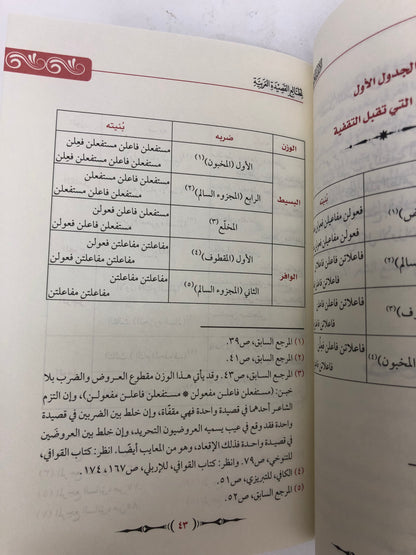 المطالع القصيدية والتربيبية
الوزن ضربه بُنيته
البسيط
الأول (المخبون)(١) مستفعلن فاعلن مستفعلن فعِلن
مستفعلن فاعلن مستفعلن فعِلن
الرابع (المجزوء السالم)(٢) مستفعلن فاعلن مستفعلن
مستفعلن فاعلن مستفعلن
المخلّع(٣) مستفعلن فاعلن فعولن
مستفعلن فاعلن فعولن
الوافر
الأول (المقطوف)(٤) مفاعلتن مفاعلتن فعولن
مفاعلتن مفاعلتن فعولن
الثاني (المجزوء السالم)(٥) مفاعلتن مفاعلتن
مفاعلتن مفاعلتن
(١) المرجع السابق، ص٣٩.
(٢) المرجع السابق، ص٤١.
(٣) المرجع السابق، ص٤٣. وقد يأتي هذا الوزن مقطوع العروض والضرب بلا
خبن: (مستفعلن فاعلن مفعولن * مستفعلن فاعلن مفعولن)، وإن التزم
الشاعر أحدهما في قصيدة واحدة فهي مقفّاة، وإن خلط بين الضربين في قصيدة
واحدة فقد وقع في عيب يسميه العروضيون التحريد، وإن خلط بين العروضَين
في قصيدة واحدة فذلك الإقعاد، وهو من المعايب أيضًا. انظر: كتاب القوافي،
للتنوخي، ص٧٩. وانظر: كتاب القوافي، للإربلي، ص١٦٧، ١٧٤.
(٤) الكافي، للتبريزي، ص٥١.
(٥) المرجع السابق، ص٥٢.
٤٣
الجدول الأول
التي تقبل التقفية
بُنيته
فعولن مفاعيلن
فعولن مفاعيلن
فاعلاتن فاعلن
فاعلاتن فاعلن
فاعلاتن
فاعلاتن
(١)
(٣)
المخبون)(٤)